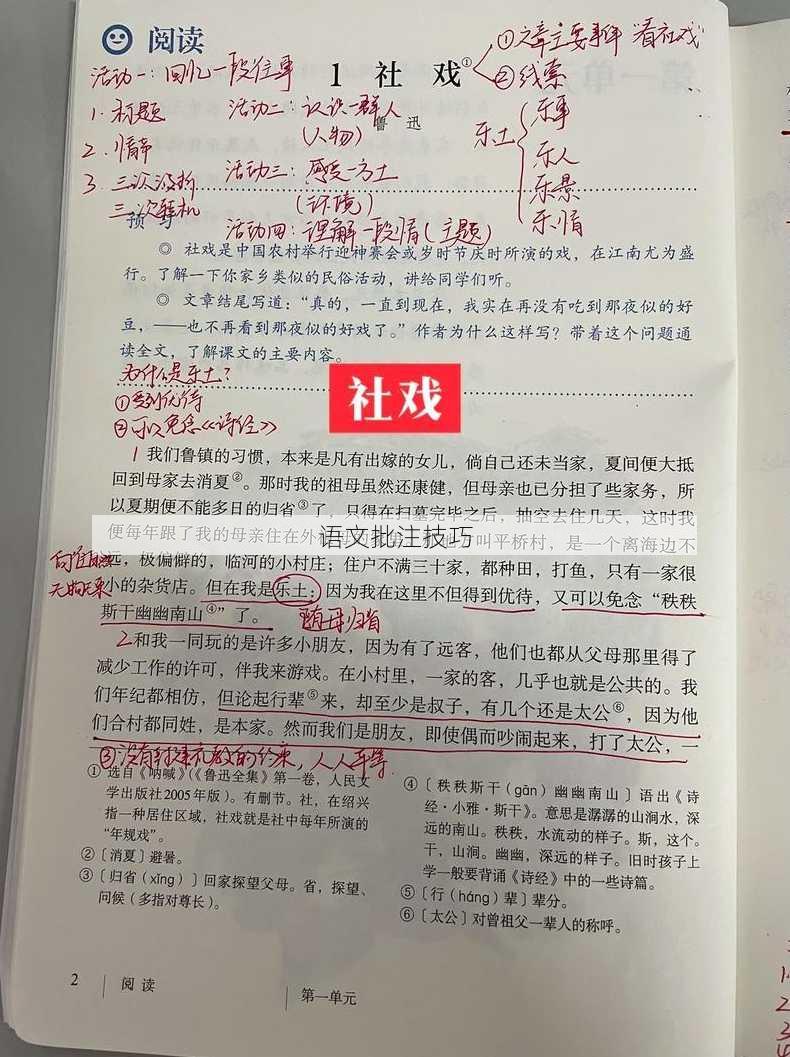 阅读
①文章主要事件“看社戏”
②线索
1 社 戏①
鲁 迅
活动一：回忆一段往事
1. 标题
2. 情节
3. 三次波折
三次转机
活动二：认识一群人
(人物)
活动三：感受一方土
(环境)
活动四：理解一段情(主题)
乐土
乐事
乐人
乐景
乐情
预 习
◎ 社戏是中国农村举行迎神赛会或岁时节庆时所演的戏，在江南尤为盛
行。了解一下你家乡类似的民俗活动，讲给同学们听。
◎ 文章结尾写道：“真的，一直到现在，我实在再没有吃到那夜似的好
豆，——也不再看到那夜似的好戏了。”作者为什么这样写？带着这个问题通
读全文，了解课文的主要内容。
为什么是乐土？
①受到优待
②可以免念《诗经》
社戏
1 我们鲁镇的习惯，本来是凡有出嫁的女儿，倘自己还未当家，夏间便大抵
回到母家去消夏②。那时我的祖母虽然还康健，但母亲也已分担了些家务，所
以夏期便不能多日的归省③了，只得在扫墓完毕之后，抽空去住几天，这时我
便每年跟了我的母亲住在外
叫平桥村，是一个离海边不
语文批注技巧
远，极偏僻的，临河的小村庄；住户不满三十家，都种田，打鱼，只有一家很
小的杂货店。但在我是乐土：因为我在这里不但得到优待，又可以免念“秩秩
斯干幽幽南山④”了。
随母归省
2 和我一同玩的是许多小朋友，因为有了远客，他们也都从父母那里得了
减少工作的许可，伴我来游戏。在小村里，一家的客，几乎也就是公共的。我
们年纪都相仿，但论起行辈⑤来，却至少是叔子，有几个还是太公⑥，因为他
们合村都同姓，是本家。然而我们是朋友，即使偶而吵闹起来，打了太公，一
③没有封建礼教的约束，人人平等.
① 选自《呐喊》(《鲁迅全集》第一卷，人民文
学出版社2005年版）。有删节。社，在绍兴
指一种居住区域，社戏就是社中每年所演的
“年规戏”。
②〔消夏〕避暑。
③〔归省（xǐng）〕回家探望父母。省，探望、
问候（多指对尊长）。
④〔秩秩斯干（gān）幽幽南山〕语出《诗
经·小雅·斯干》。意思是潺潺的山涧水，深
远的南山。秩秩，水流动的样子。斯，这个。
干，山涧。幽幽，深远的样子。旧时孩子上
学一般要背诵《诗经》中的一些诗篇。
⑤〔行（háng）辈〕辈分。
⑥〔太公〕对曾祖父一辈人的称呼。
2
阅 读
第一单元